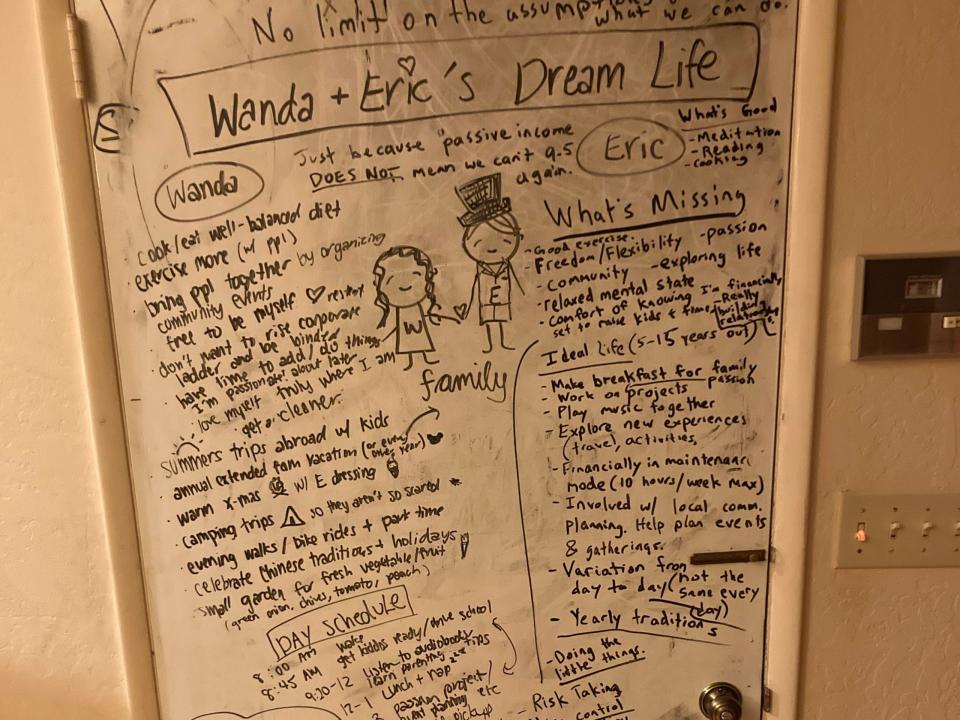 No limit on the assumptions
what we can do.
Wanda + Eric's Dream Life
Just because "passive income
DOES NOT mean we can't 9-5
again.
Wanda
cook/eat well-balanced diet
exercise more (w/ ppl)
bring ppl together by organizing
community events
free to be myself
don't want to rise corporate
ladder and be
have time to add/do things
I'm passionate about later
love myself truly where I am
get a cleaner.
summers trips abroad w/ kids
annual extended fam vacation (or every other year)
warm x-mas w/ E dressing
camping trips so they aren't so scared
evening walks/bike rides + part time
celebrate Chinese traditions + holidays
small garden for fresh vegetable/fruit
(green onion, chives, tomato, peach)
DAY SCHEDULE
8:00 AM wake
8:45 AM get kiddos ready/drive school
9:30-12 listen to audiobooks/
learn parenting tips
12-1 Lunch + nap zzz
passion project/
event planning
etc
pickup
W
E
family
Eric
What's Good
- Meditation
- Reading
- Cooking
What's Missing
- Good exercise.
- Freedom/Flexibility - passion
- community - exploring life
- relaxed mental state
- Comfort of knowing I'm financially
set to raise kids + - Really
building
relationships
Ideal Life (5-15 years out)
- Make breakfast for family
- Work on passion projects
- Play music together
- Explore new experiences
(travel, activities,
- Financially in maintenance
mode (10 hours/week max)
- Involved w/ local comm.
planning. Help plan events
& gatherings.
- Variation from
day to day (not the
same every
day)
- Yearly traditions
- Doing the
little things.
- Risk Taking
control